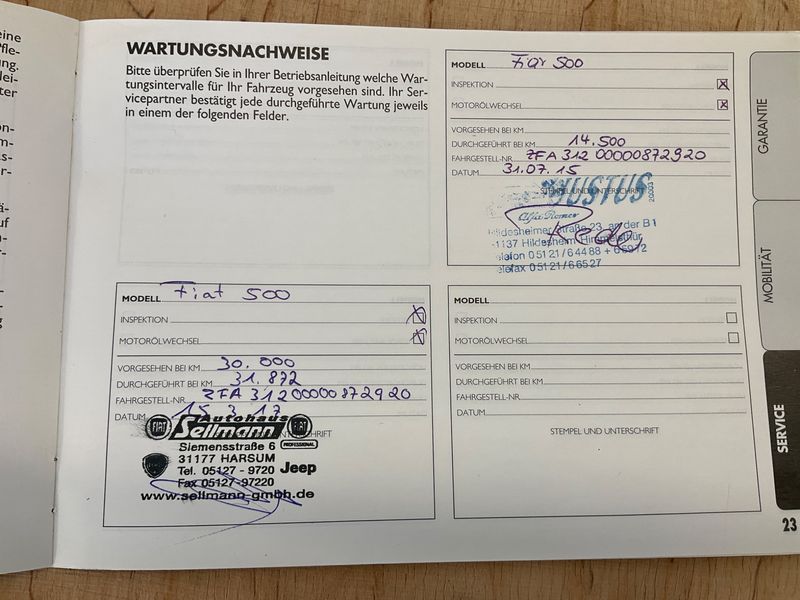 WARTUNGSNACHWEISE
Bitte überprüfen Sie in Ihrer Betriebsanleitung welche War-
tungsintervalle für Ihr Fahrzeug vorgesehen sind. Ihr Ser-
vicepartner bestätigt jede durchgeführte Wartung jeweils
in einem der folgenden Felder.
MODELL Fiat 500
INSPEKTION
MOTORÖLWECHSEL
VORGESEHEN BEI KM
DURCHGEFÜHRT BEI KM 14.500
FAHRGESTELL-NR. ZFA 312 00000872920
DATUM 31.07.15
STEMPEL UND UNTERSCHRIFT
JUSTUS
20003
Alfa Romeo
Hildesheimer Straße 23, an der B1
31137 Hildesheim Himmelsthür
Telefon 05121/64488 + 65972
Telefax 05121/66527
MODELL Fiat 500
INSPEKTION
MOTORÖLWECHSEL
VORGESEHEN BEI KM 30.000
DURCHGEFÜHRT BEI KM 31.872
FAHRGESTELL-NR. ZFA 31200000872920
DATUM 15 3 17
Autohaus
FIAT Sellmann FIAT
PROFESSIONAL
Siemensstraße 6
31177 HARSUM
Tel. 05127 - 9720 Jeep
Fax 05127-97220
www.sellmann-gmbh.de
MODELL
INSPEKTION
MOTORÖLWECHSEL
VORGESEHEN BEI KM
DURCHGEFÜHRT BEI KM
FAHRGESTELL-NR.
DATUM
STEMPEL UND UNTERSCHRIFT
GARANTIE
MOBILITÄT
SERVICE
23